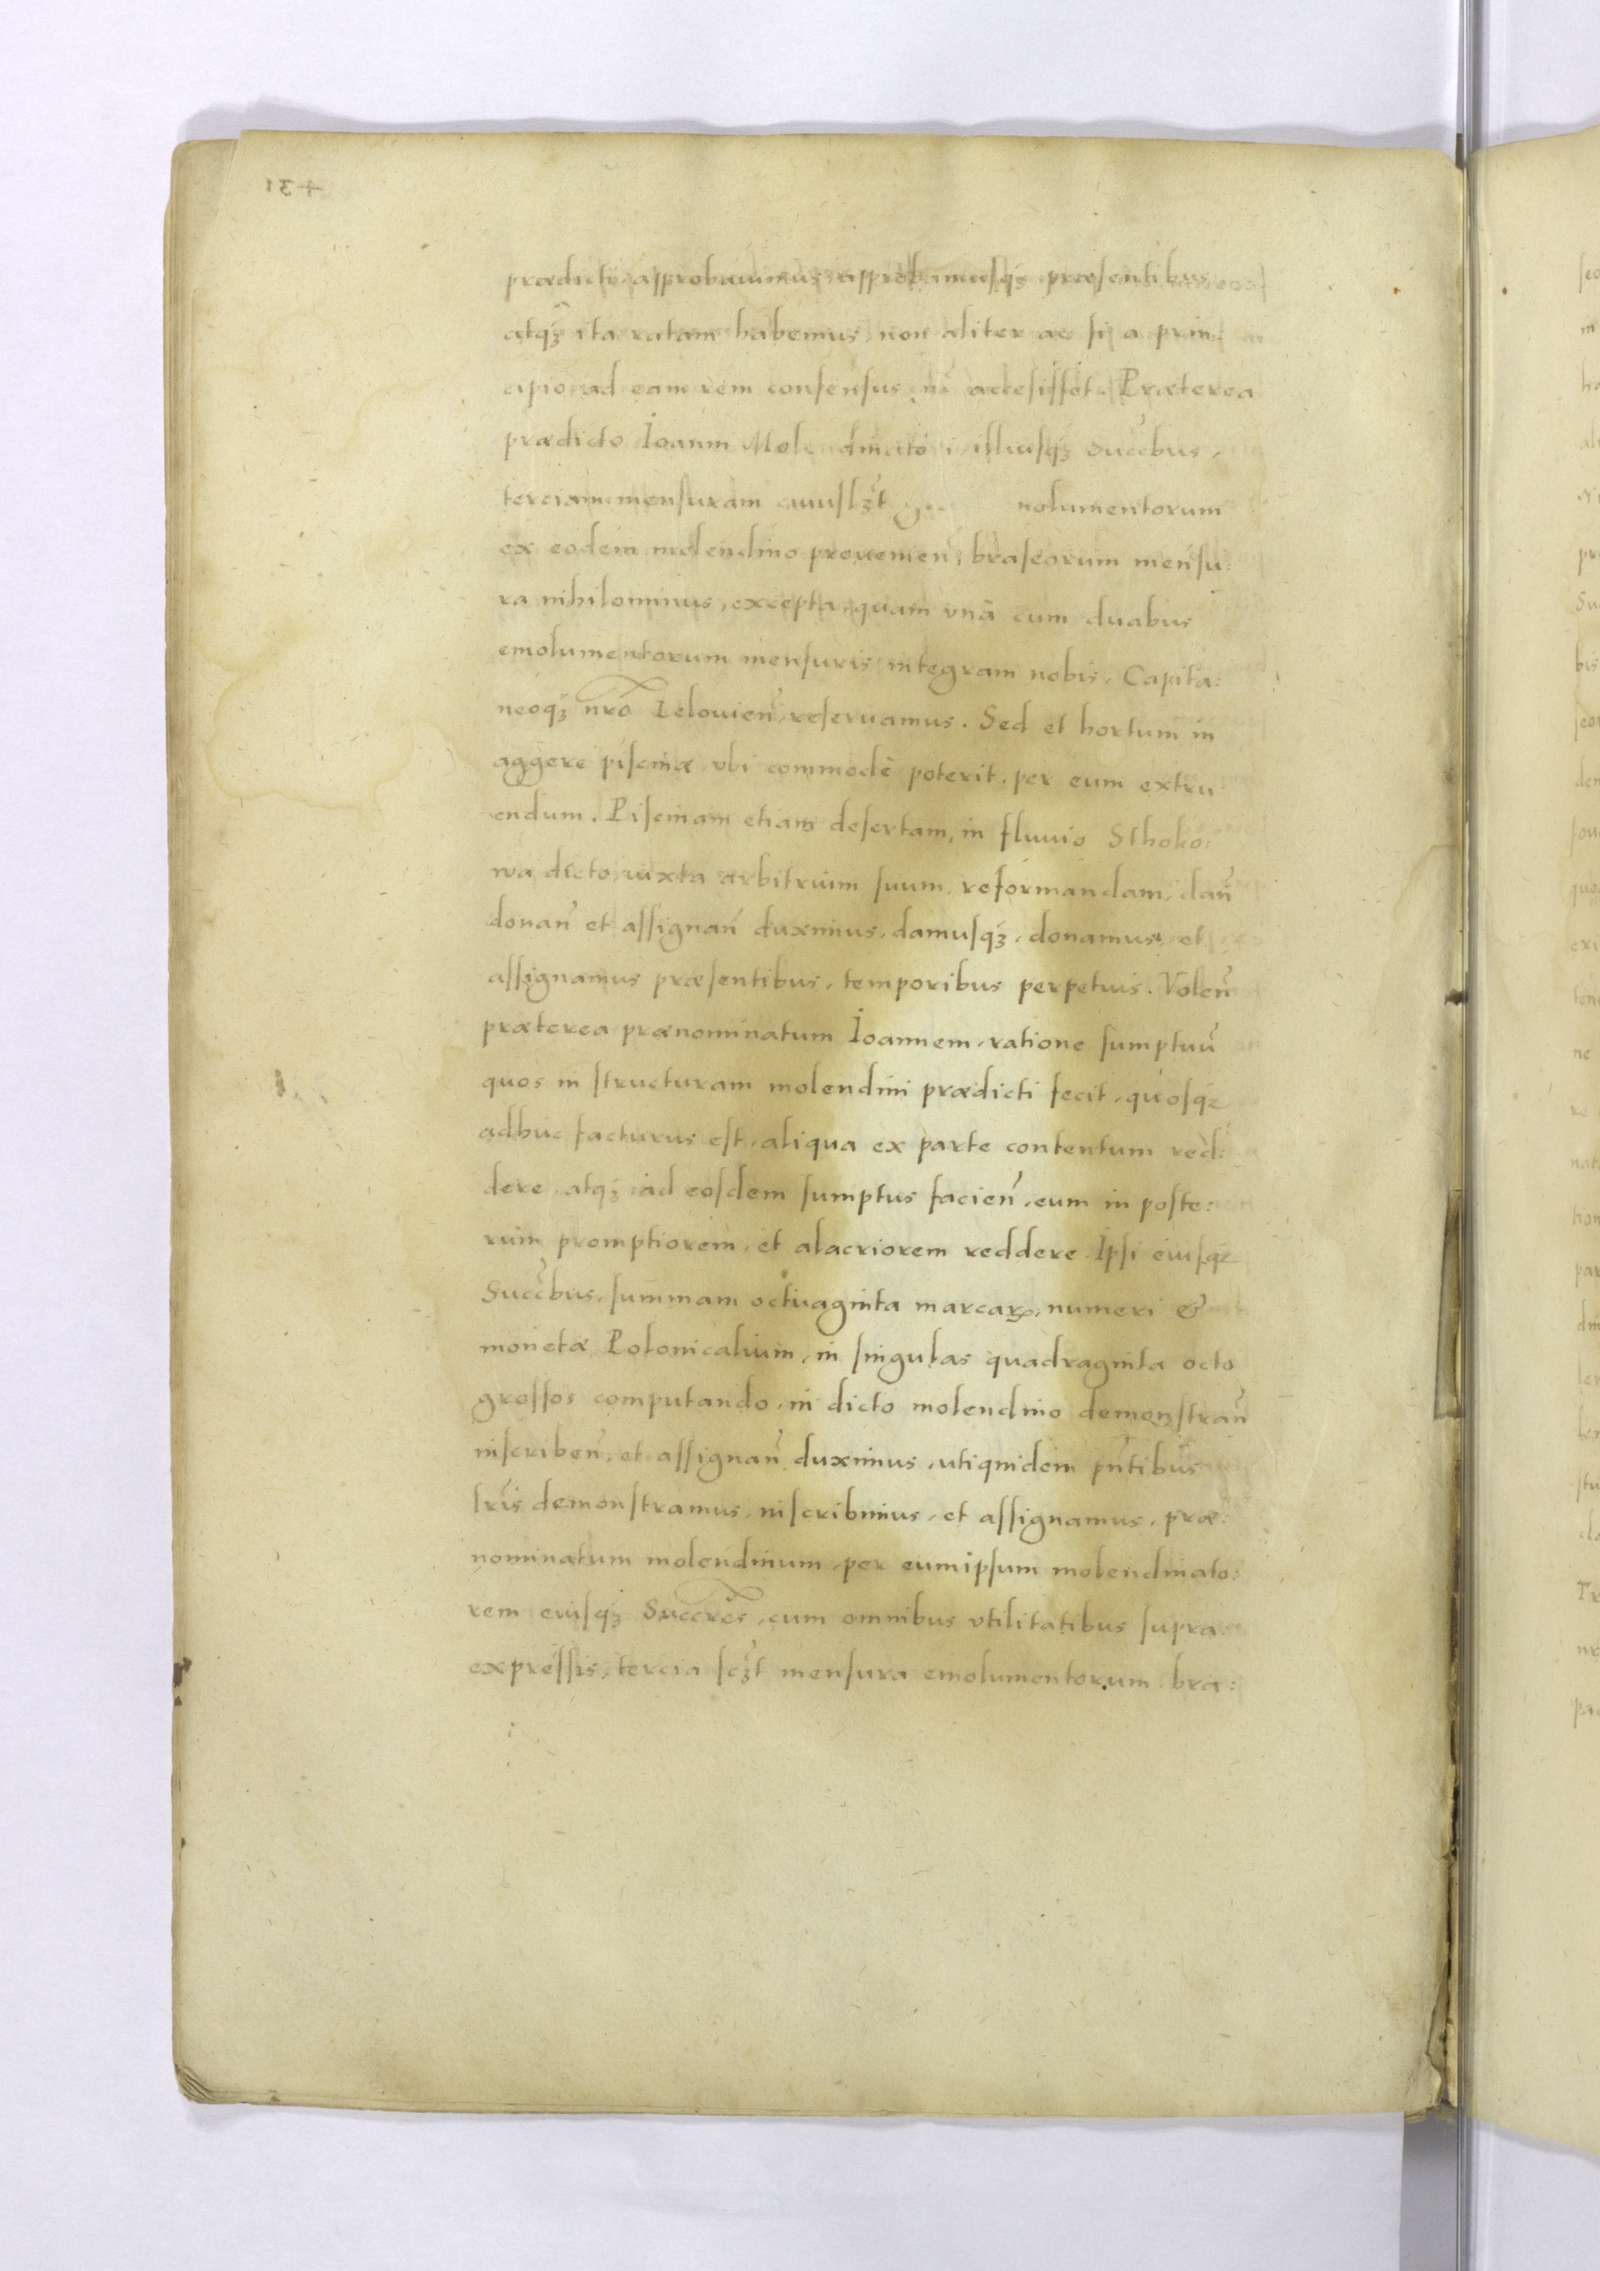 prædicti, approbauimus, approbamusq́ꝫ præsentibus
atq́ꝫ ita ratam habemus non aliter ac si a prin:
cipio ad eam rem consensus nr̃ accesisset. Præterea
prædicto Ioanni Molendinatori illiusq́ꝫ succ̃bus,
terciam mensuram cuiuslꝫt molumentorum
ex eodem molendino prouenien̄, braseorum mensu:
ra nihilominus, excepta, quam vnã cum duabus
emolumentorum mensuris integram nobis, Capita:
neoq́ꝫ nr̃o Lelouien̄, reseruamus. Sed et hortum in
aggere piscinæ vbi commodè poterit, per eum extru
endum. Piscinam etiam desertam, in fluuio Sthoko:
wa dicto, iuxta arbitrium suum reformandam, dan̄
donan̄ et assignan̄ duximus, damusq́ꝫ, donamus et
assignamus præsentibus, temporibus perpetuis. Volen̄
præterea prænominatum Ioannem, ratione sumptuū
quos in structuram molendini prædicti fecit, quosq́ꝫ
adhuc facturus est, aliqua ex parte contentum red:
dere atq́ꝫ ad eosdem sumptus facien̄, eum in poste:
rum promptiorem, et alacriorem reddere Ipsi eiusq́ꝫ
Succ̃bus, summam octuaginta marcaꝝ, numeri &
monetæ Polonicalium, in singulas quadraginta octo
grossos computando, in dicto molendino demonstran̄
inscriben̄, et assignan̄ duximus, utiquidem pn̄tibus
lr̃is demonstramus, inscribimus, et assignamus, præ:
nominatum molendinum, per eumipsum molendinato:
rem eiusq́ꝫ Succr̃es, cum omnibus vtilitatibus supra
expressis, tercia scꝫt mensura emolumentorum bra: